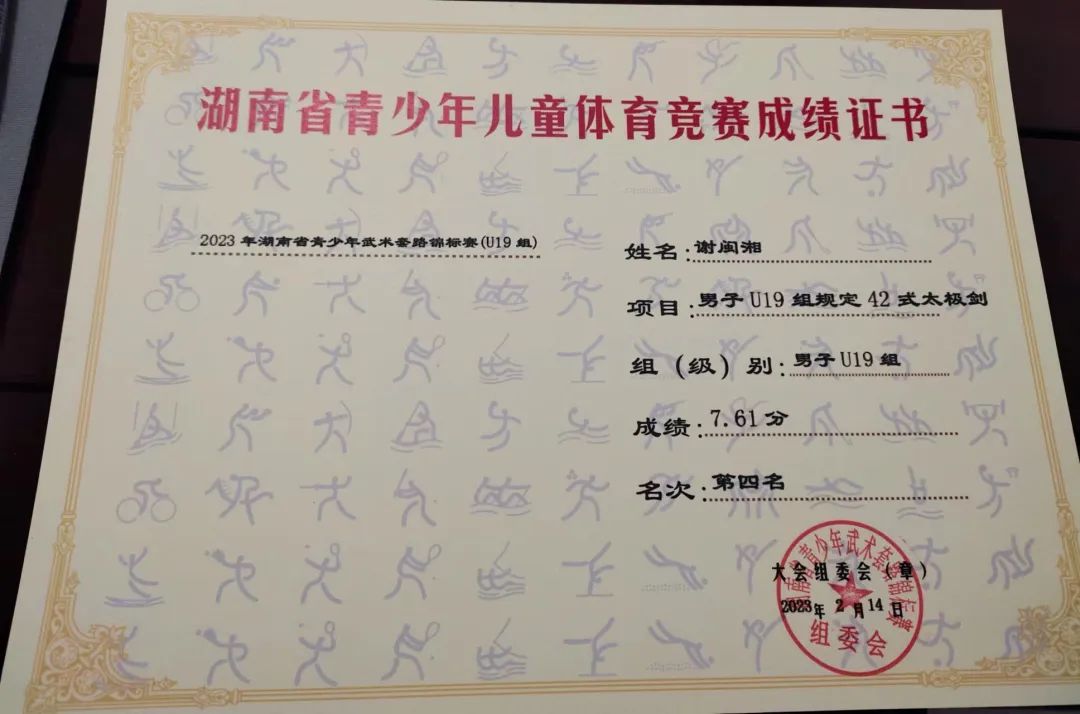 湖南省青少年儿童体育竞赛成绩证书
2023 年湖南省青少年武术套路锦标赛(U19 组)
姓名:谢闽湘
项目:男子 U19 组规定 42 式太极剑
组（级）别:男子 U19 组
成绩:7.61 分
名次:第四名
大会组委会（章）
2023年 2 月 14 日
湖南省青少年武术套路锦标赛
组委会